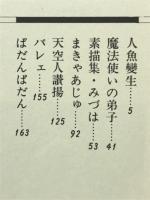 人魚變生……5
魔法使いの弟子……41
素描集・みづは……53
まきゃあじゅ……92
天空人讃揚……125
バレェ……155
ぱだんぱだん……163